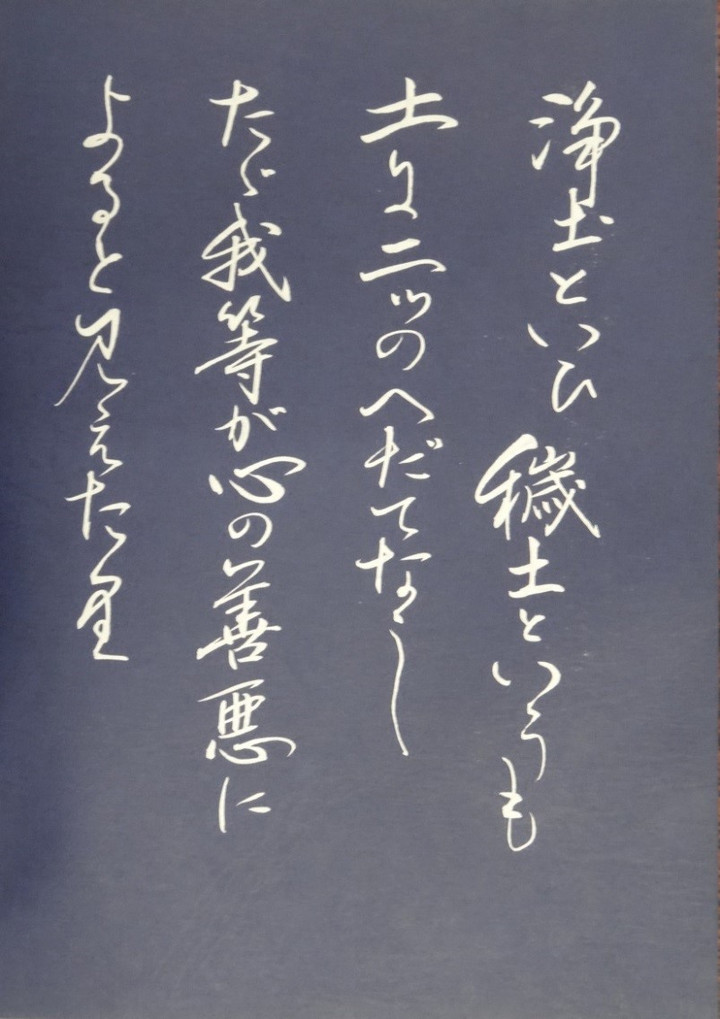 浄土といひ穢土というも
土に二ツのへだてなし
たゞ我等が心の善悪に
よると見えたり